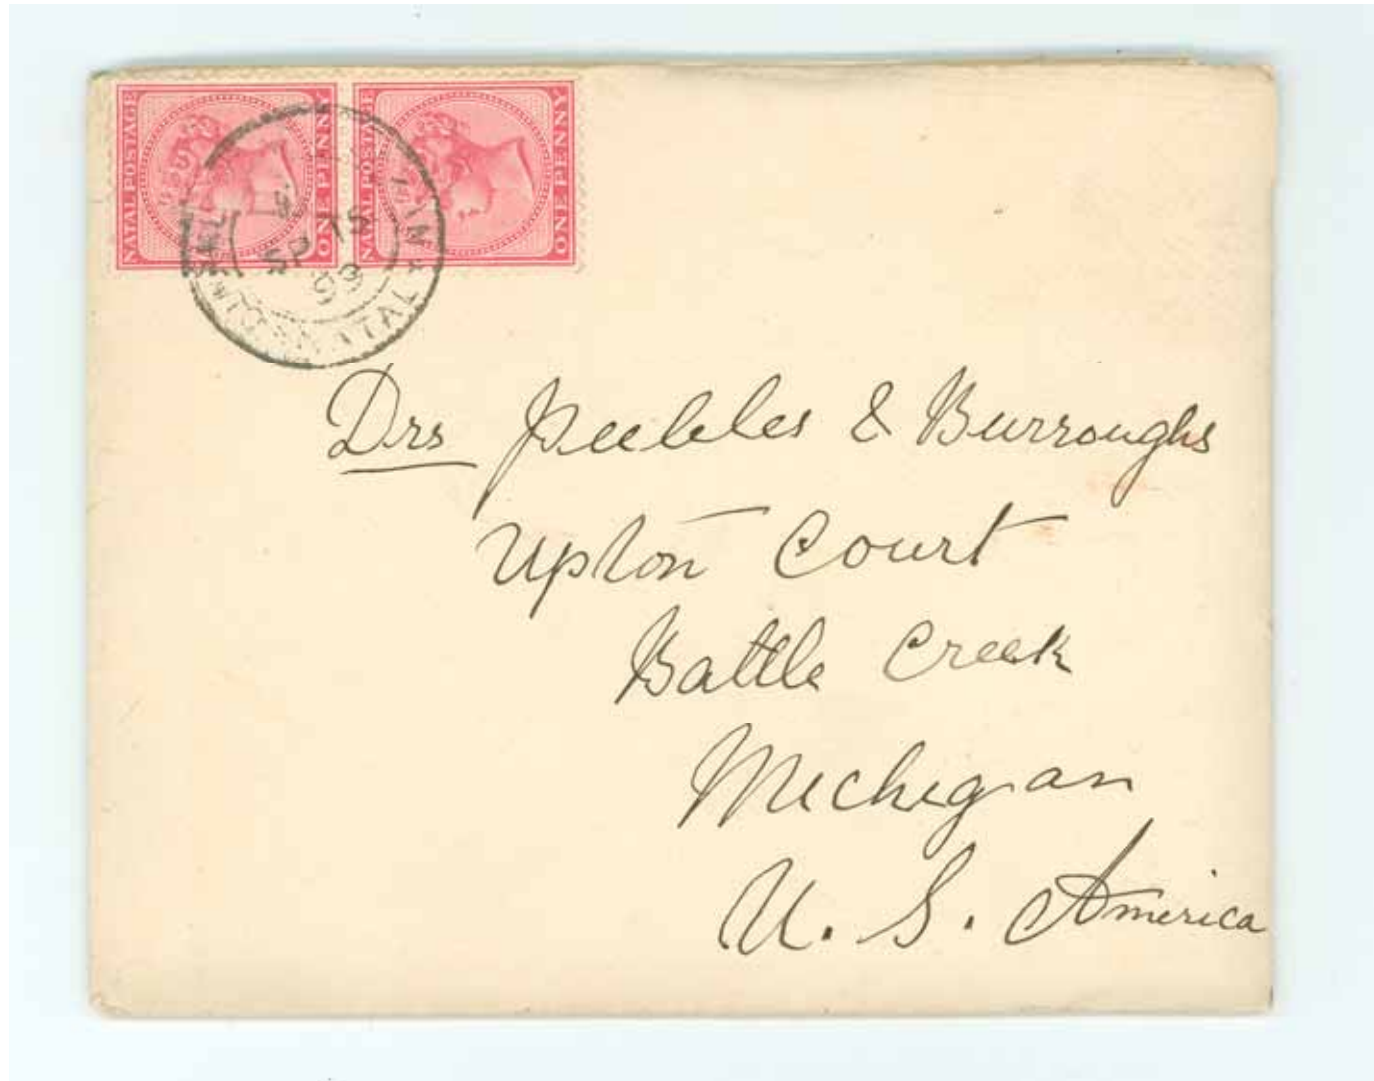 NATAL POSTAGE
ONE PENNY
NATAL POSTAGE
ONE PENNY
SP 15
99
Drs Peebles & Burroughs
Upton Court
Battle Creek
Michigan
U. S. America